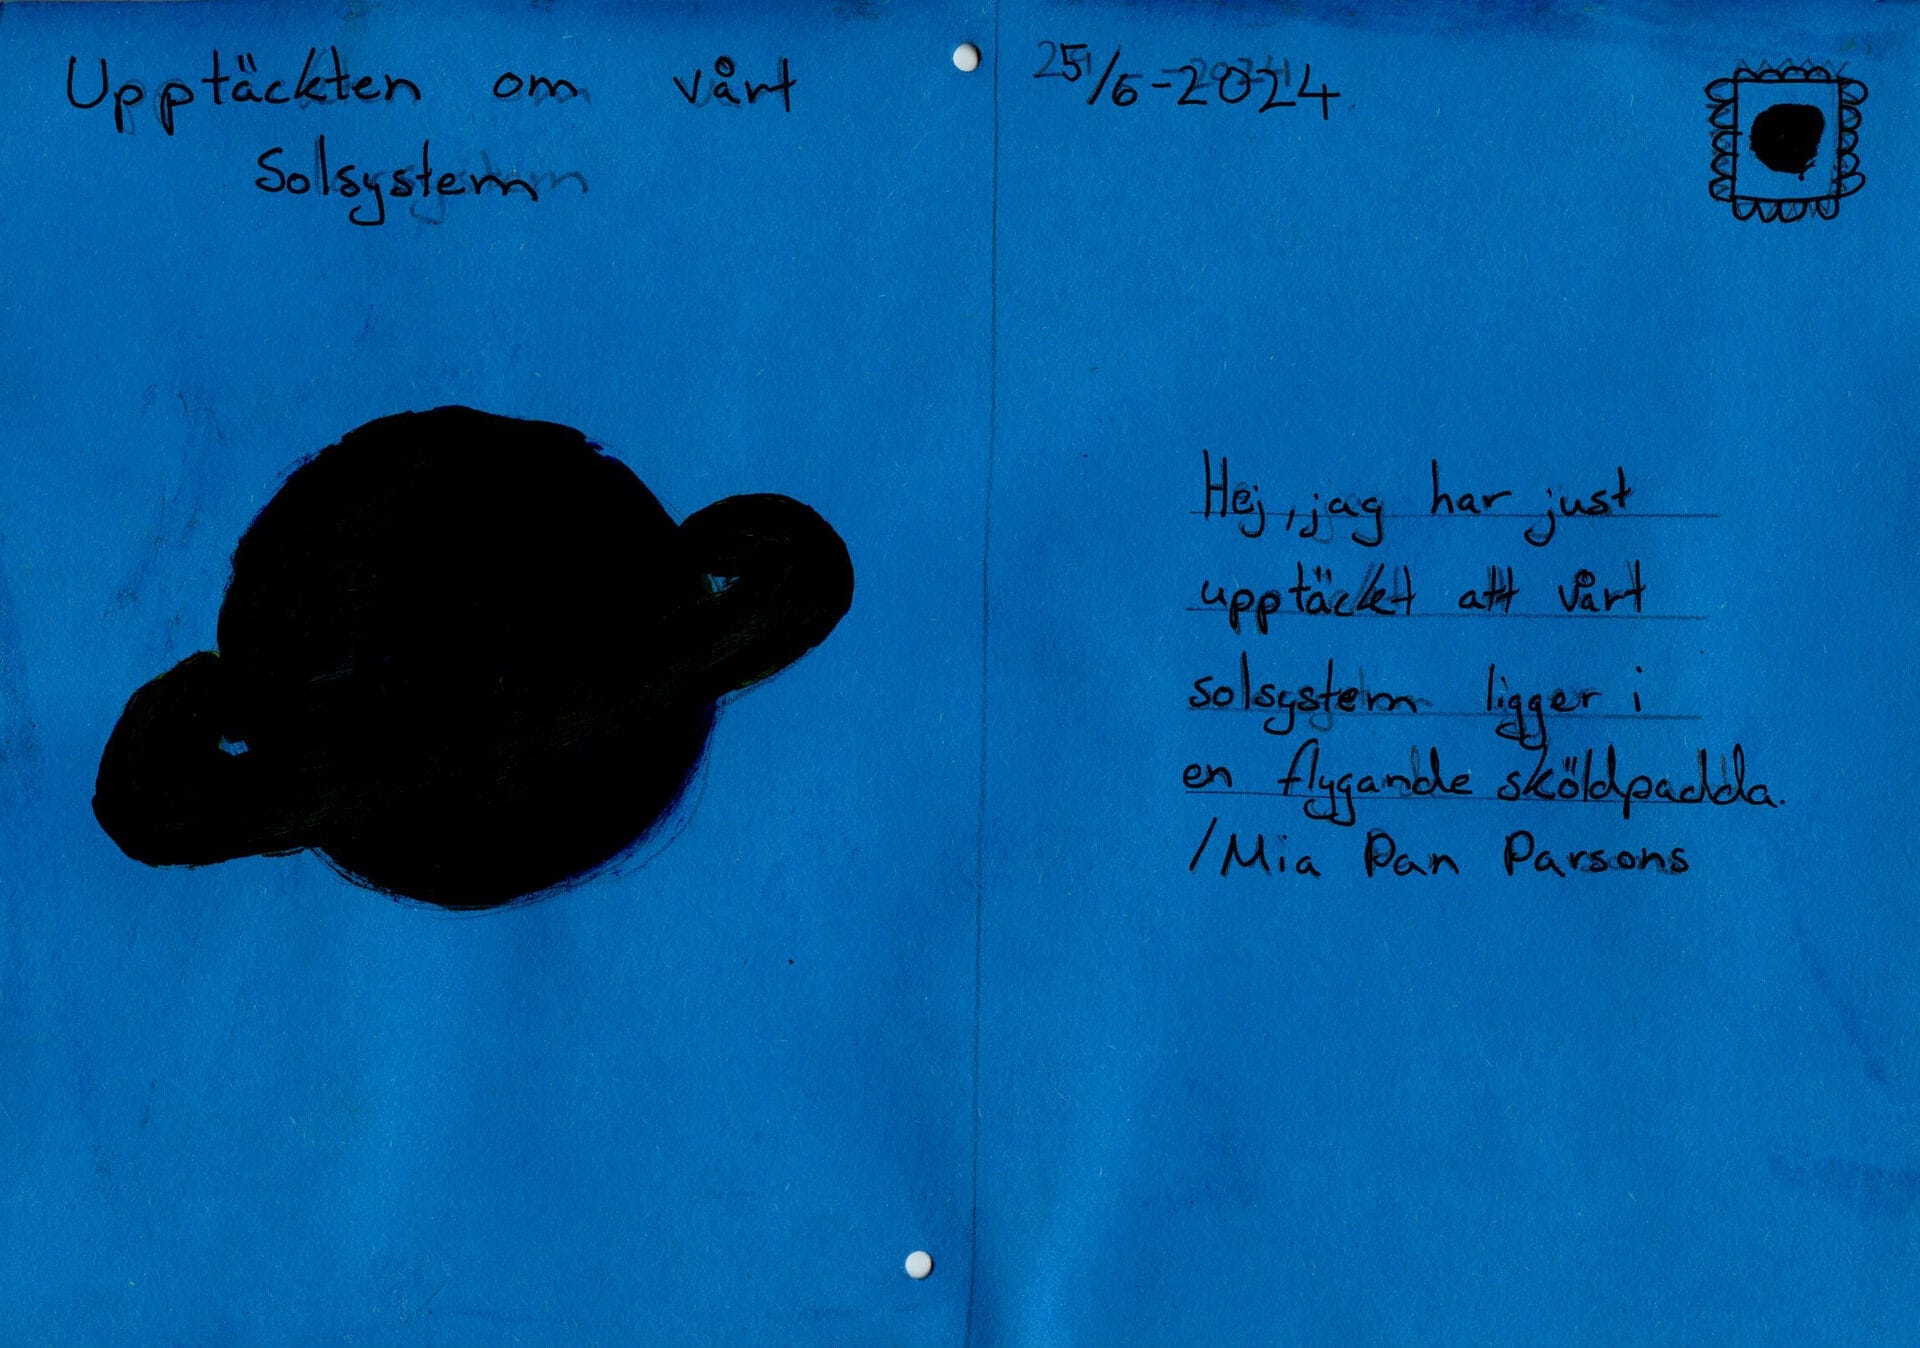 Upptäckten om vårt
Solsystem
25/6-2024
Hej, jag har just
upptäckt att vårt
solsystem ligger i
en flygande sköldpadda.
/Mia Dan Parsons